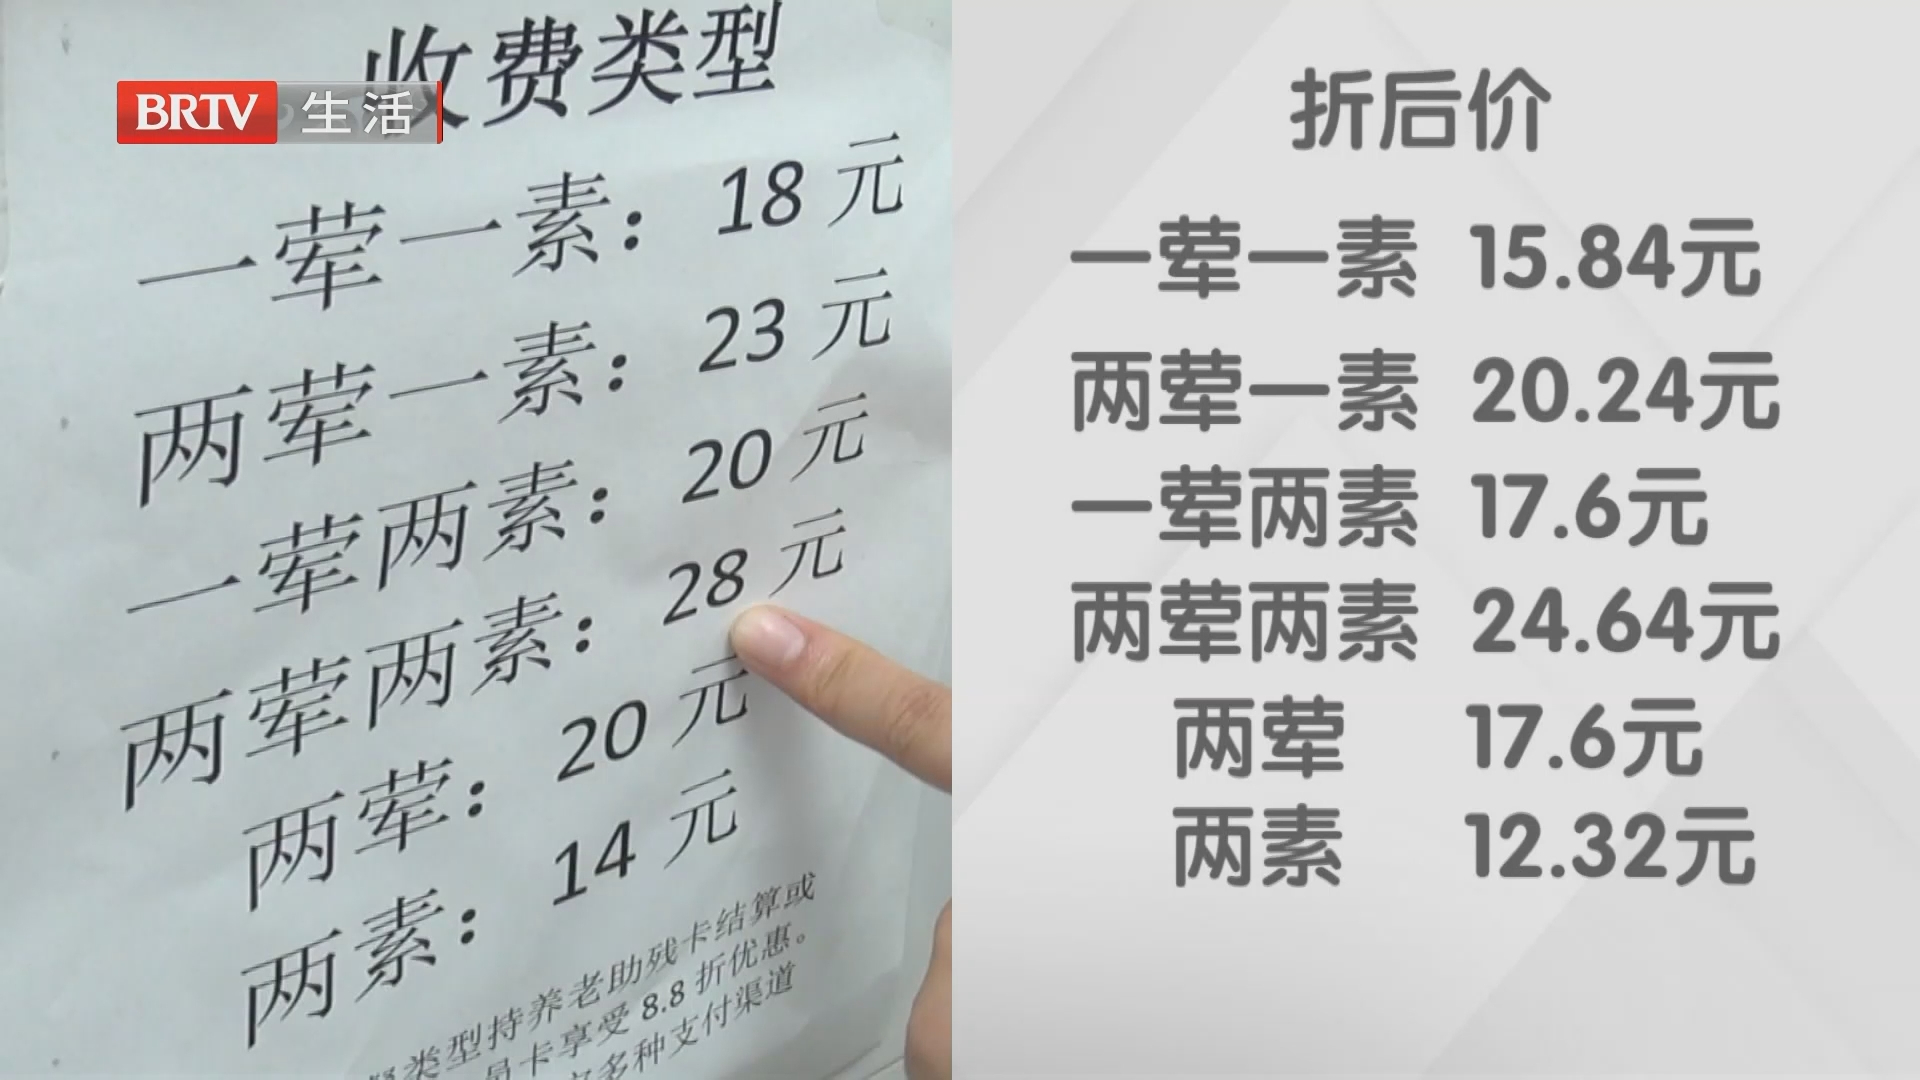 收费类型
BRTV 生活
一荤一素：18元
两荤一素：23元
一荤两素：20元
两荤两素：28元
两荤：20元
两素：14元
类型持养老助残卡结算或
员卡享受8.8折优惠。
多种支付渠道
折后价
一荤一素 15.84元
两荤一素 20.24元
一荤两素 17.6元
两荤两素 24.64元
两荤 17.6元
两素 12.32元